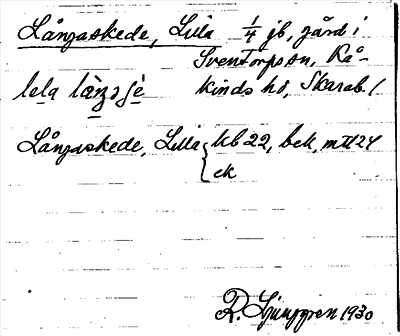 Långaskede, Lilla 1/4 jb, gård i
Sventorps sn, Kå-
kinds hd, Skarab. l.
lela
Långaskede, Lilla { kb 22, bek, mtl 24
ek
R. Ljunggren 1930